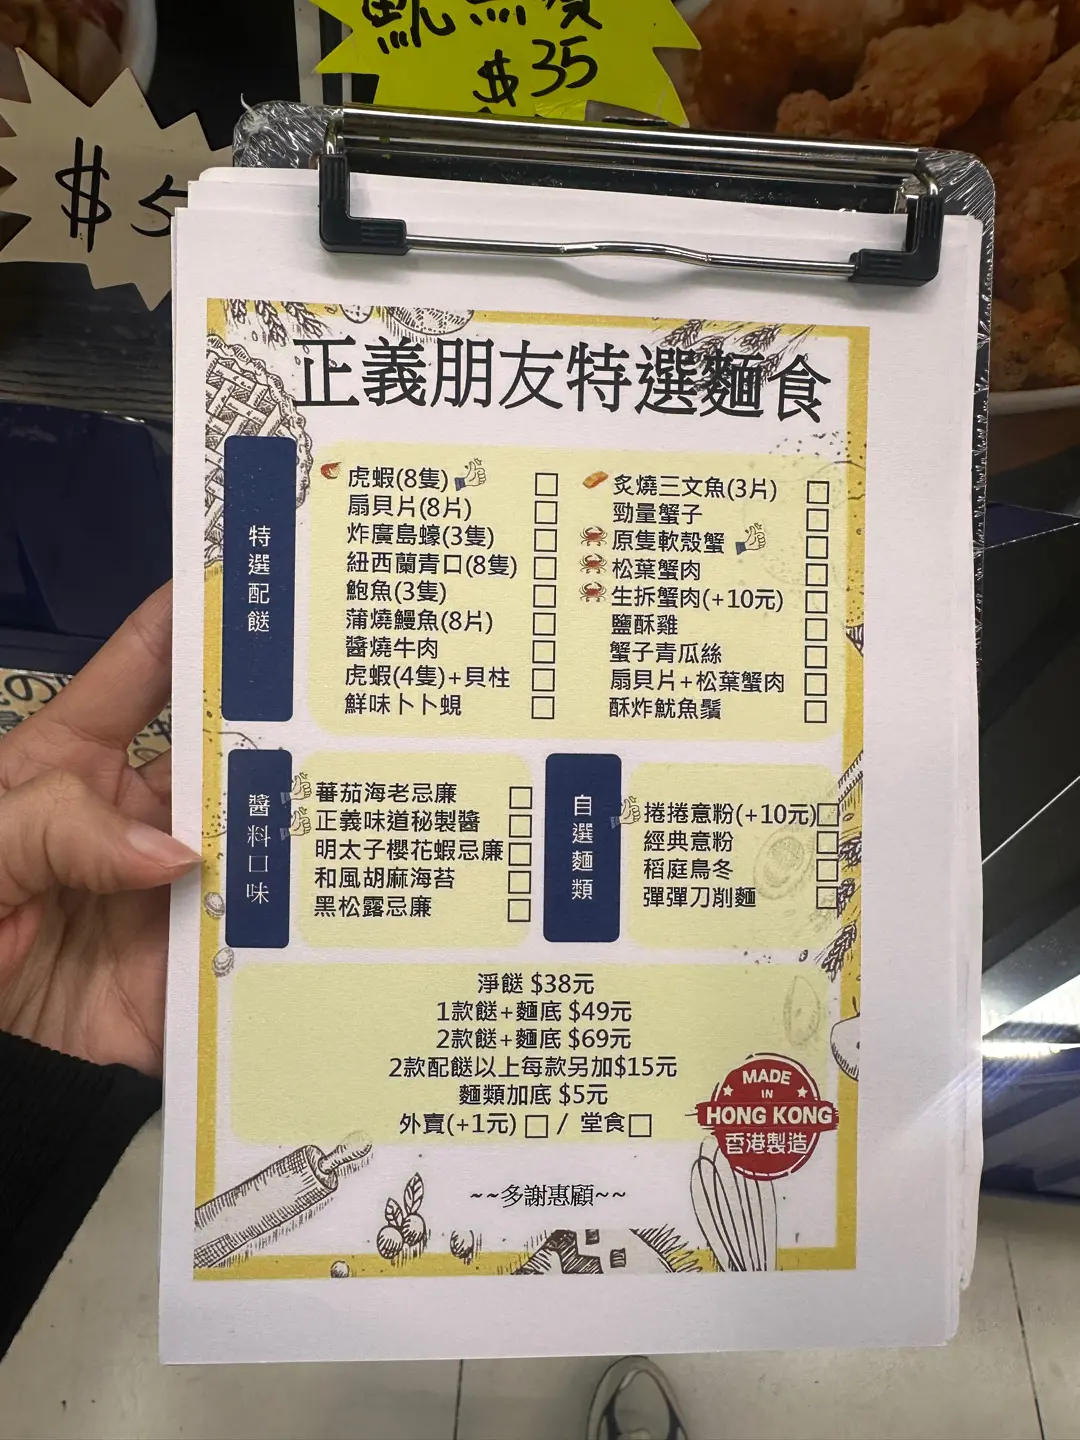 魷魚鬚
$35
$5
正義朋友特選麵食
特選配餸
虎蝦(8隻)
扇貝片(8片)
炸廣島蠔(3隻)
紐西蘭青口(8隻)
鮑魚(3隻)
蒲燒鰻魚(8片)
醬燒牛肉
虎蝦(4隻)+貝柱
鮮味卜卜蜆
炙燒三文魚(3片)
勁量蟹子
原隻軟殼蟹
松葉蟹肉
生拆蟹肉(+10元)
鹽酥雞
蟹子青瓜絲
扇貝片+松葉蟹肉
酥炸魷魚鬚
醬料口味
蕃茄海老忌廉
正義味道秘製醬
明太子櫻花蝦忌廉
和風胡麻海苔
黑松露忌廉
自選麵類
捲捲意粉(+10元)
經典意粉
稻庭烏冬
彈彈刀削麵
淨餸 $38元
1款餸+麵底 $49元
2款餸+麵底 $69元
2款配餸以上每款另加$15元
麵類加底 $5元
外賣(+1元) □ / 堂食□
MADE
IN
HONG KONG
香港製造
~~多謝惠顧~~